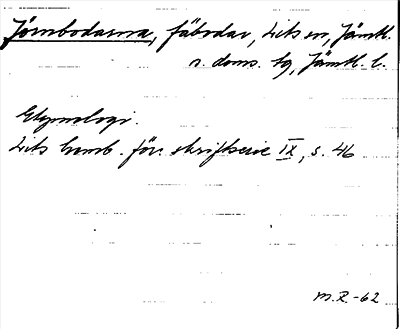 Jörnbodarna, fäbodar, Lits sn, Jämtl.
n. doms. tg, Jämtl. l.
Etymologi.
Lits hemb. för. skriftserie IX, s. 46
M.R.-62